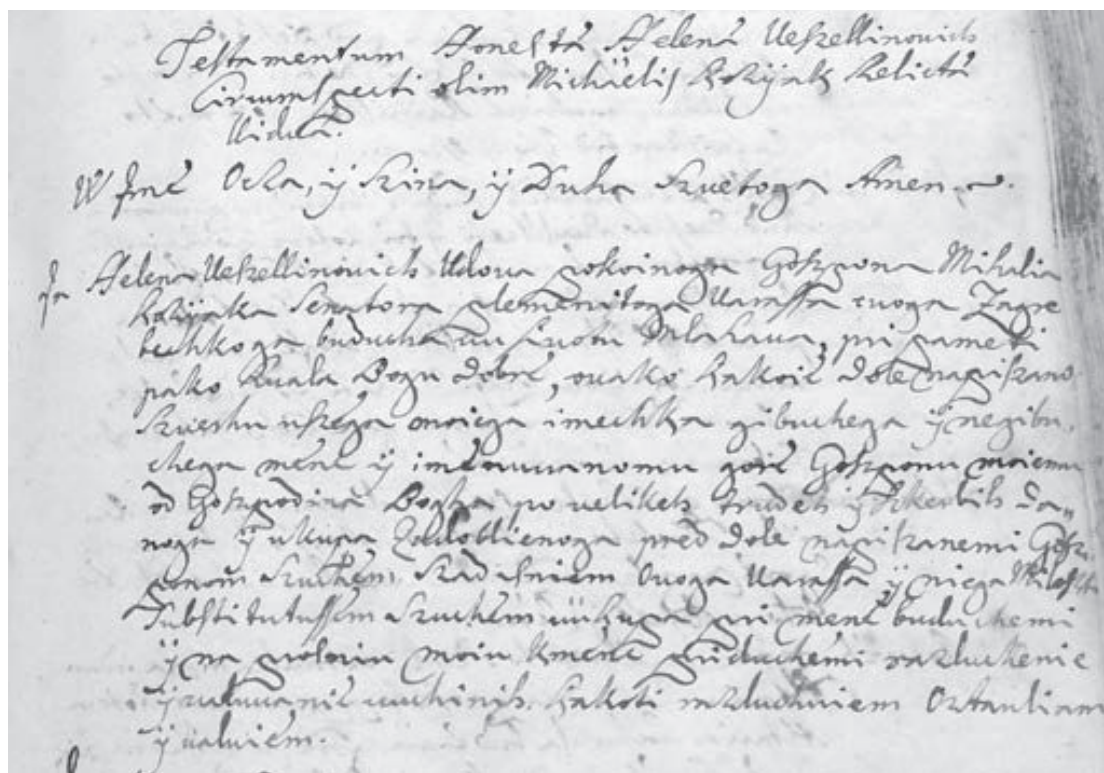 Testamentum Honestæ Helenæ Veszellinovich
Circumspecti olim Michaelis Relictæ
Viduæ.
W Jme Ocza, ÿ Szina, ÿ Duha Szvetoga Amen.
Ja Helena Veszellinovich Vdova pokoinoga Goszpona Mihalia
Senatora plemenitoga Varassa ovoga Zagre
bechkoga buducha vu sivotu Mlahava, pri pameti
pako hvala Bogu dobre, ovako kakoie dole napiszano
szverhu vszega moiega imechka gibuchega ÿ negibu,
chega mene ÿ imenuvanomu gore Goszponu moiemu
od Goszpodina Bogha po velikeh trudeh ÿ da,,
noga ÿ vkupa Zadobblienoga pred dole napiszanemi Gosz,
ponom Szuchem, ovoga Varassa ÿ niega
Substitutussem Szuchem vkupa pri mene buduchemi
ÿ na moiu k mene priduchemi razluchenie
ÿ vuchinih. kakoti razluchuiem Osztavliam
ÿ valuiem.